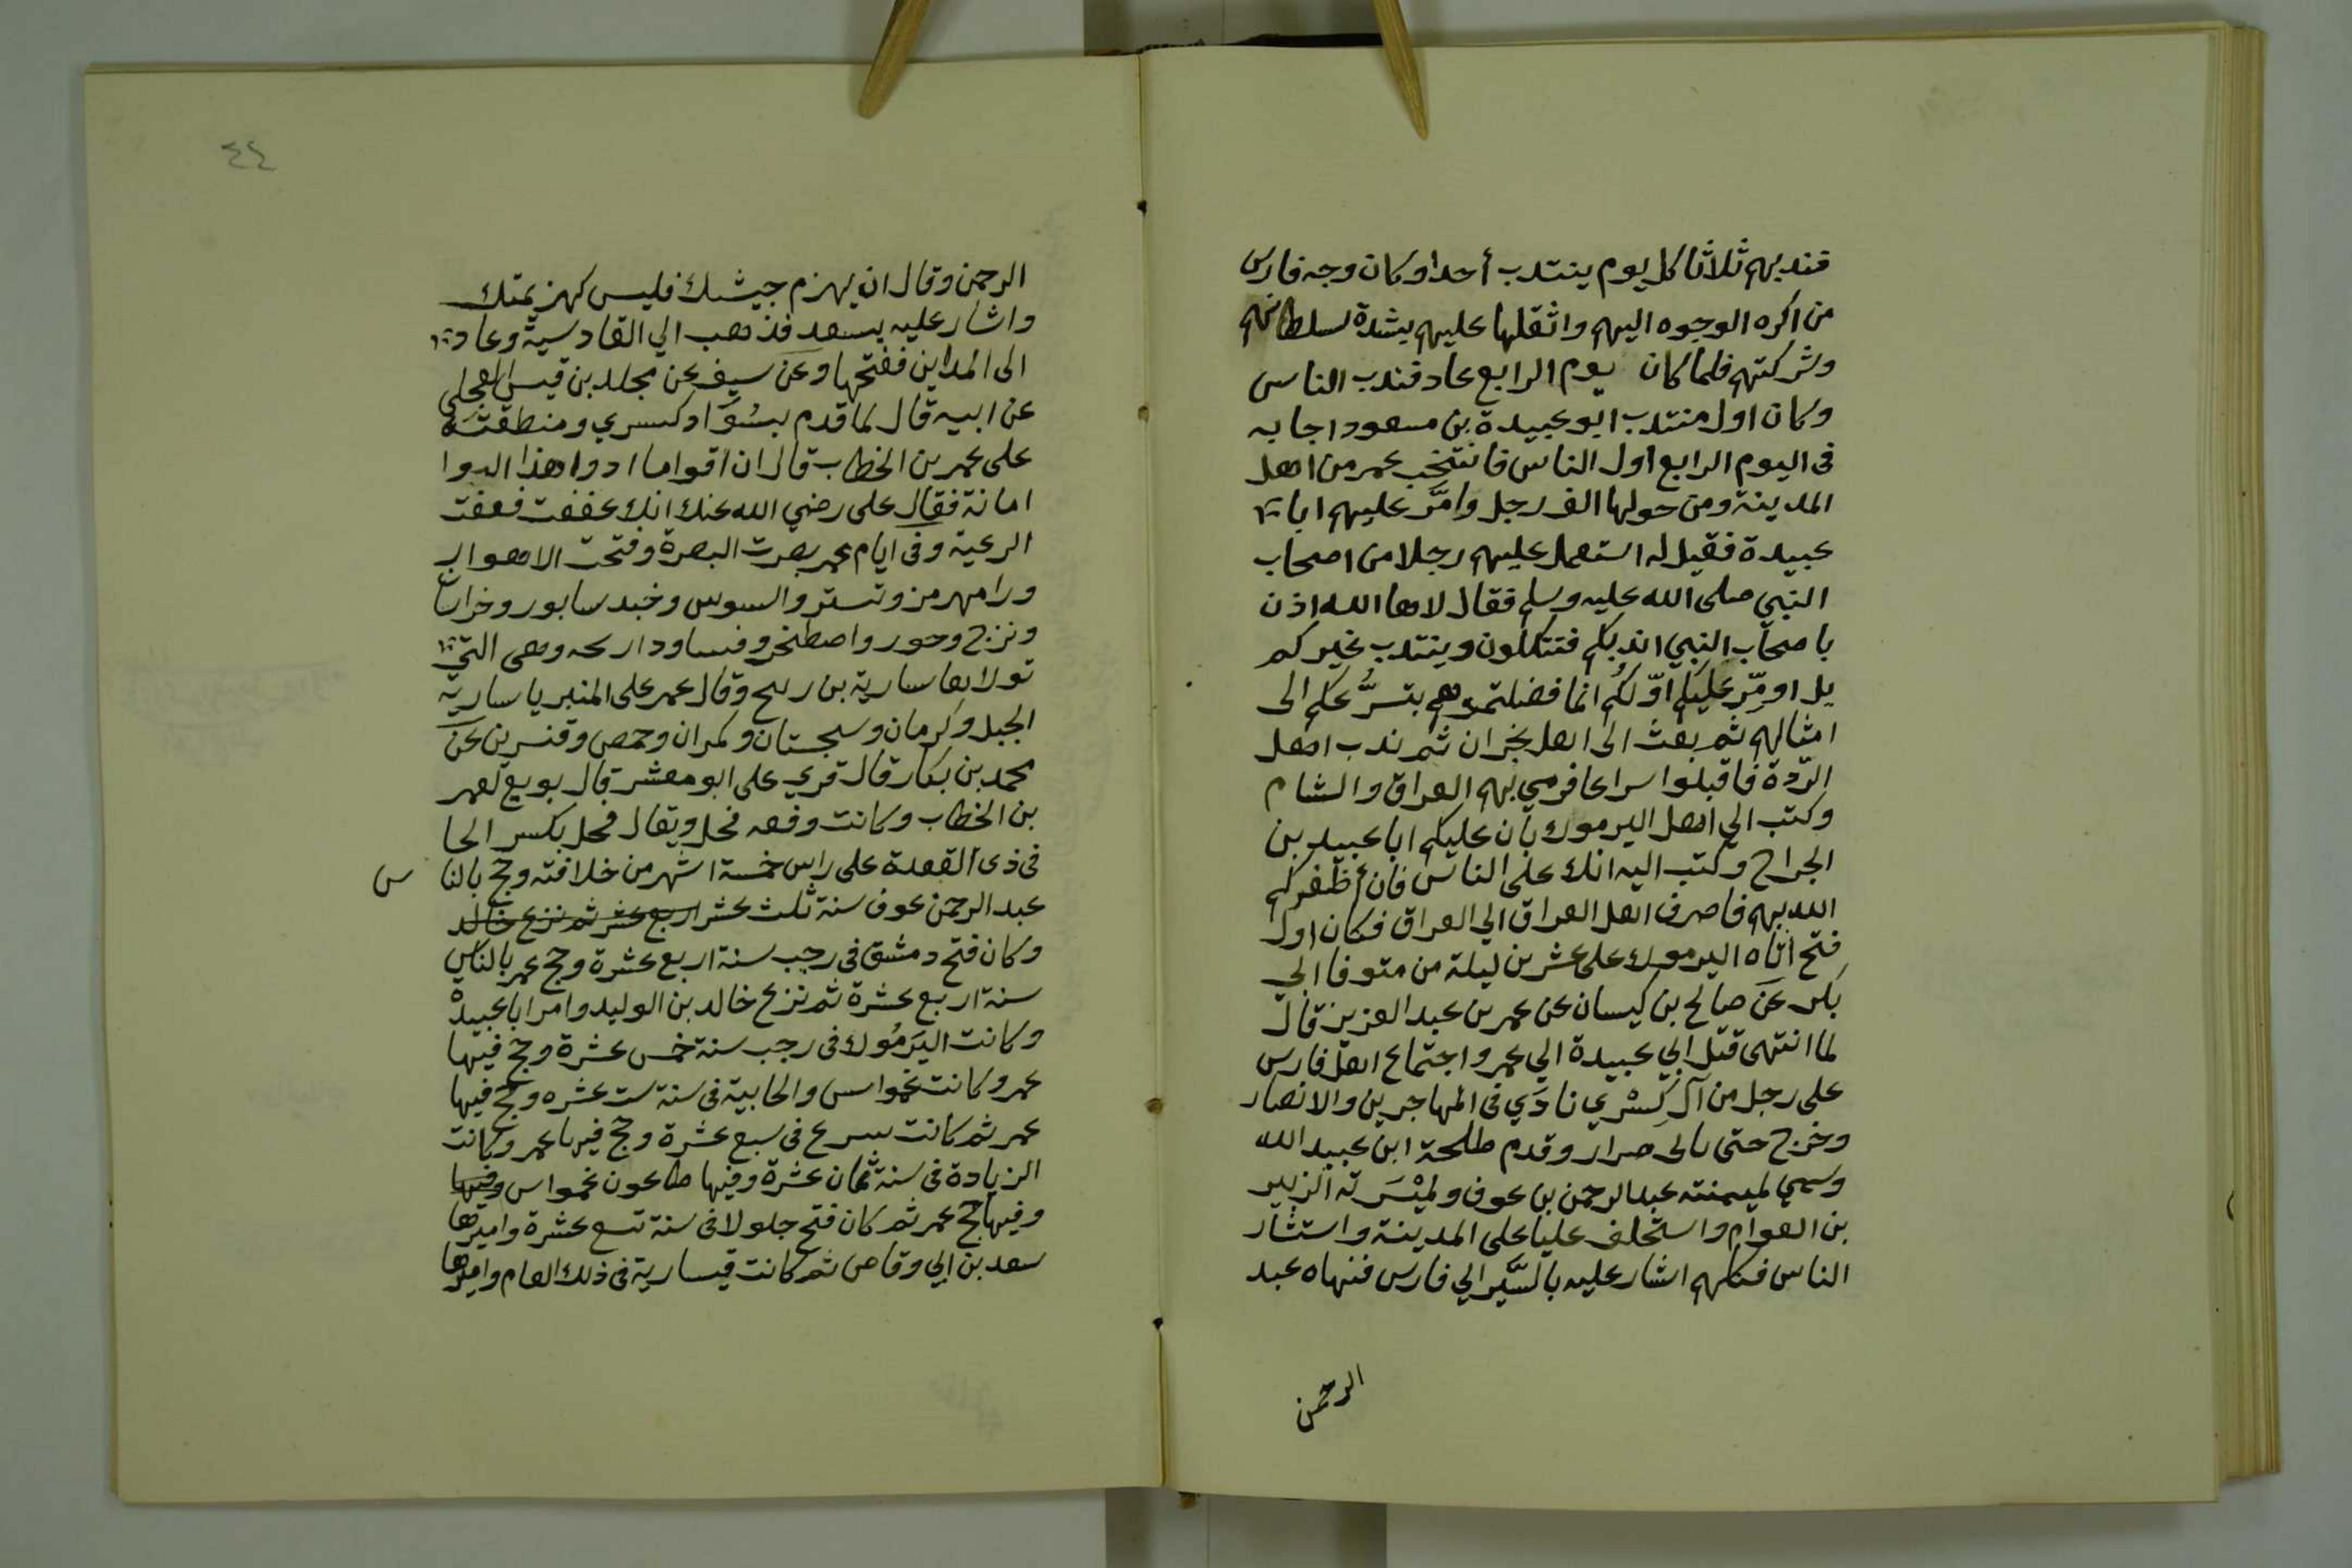 فندبهم ثلاثا كل يوم ينتدب أحدا وكان وجه فارس
من اكره الوجوه اليهم واثقلها عليهم بشدة لسلطانهم
وشركتهم فلما كان يوم الرابع عاد فندب الناس
وكان اول منتدب ابو عبيدة بن مسعود اجابه
فى اليوم الرابع أول الناس فانتخب عمر من اهل
المدينة ومن حولها الف رجل وامَّر عليهم ابا
عبيدة فقيل له استعمل عليهم رجلا من اصحاب
النبي صلى الله عليه وسلم فقال لاها الله اذن
با صحاب النبي اندبكم فتتكلون وينتدب غيركم
بل اومِّر عليكم اوّلكُم انما فضلتموهم بتسرُّعكم الى
امثالهم ثم بعث الى اهل نجران ثم ندب اهل
الرّدة فاقبلوا سراعا فرمي بهم العراق والشام
وكتب الي اهل اليرموك بأن عليكم ابا عبيد بن
الجراح وكتب اليه انك على الناس فان أظفركم
الله بهم فاصرف اهل العراق الي العراق فكان اول
فتح اتاه اليرموك على عشرين ليلة من متوفا ابي
بكر عن صالح بن كيسان عن عمر بن عبد العزيز قال
لما انتهى قتل ابي عبيدة الي عمر واجتماع اهل فارس
على رجل من آل كِسْري نادَي فى المهاجرين والانصار
وخرج حتى الى صرار وقدم طلحة ابن عبيد الله
وسمي لميمنته عبد الرحمن بن عوف ولميْسَرته الزبير
بن العوام واستخلف عليا على المدينة واستشار
الناس فكلهم اشار عليه بالسَّير الي فارس فنهاه عبد
الرحمن
٤٤
الرحمن وقال ان يهزم جيشك فليس كهزيمتك
واشار عليه بسعد فذهب الي القادسية وعاد
الى المداين ففتحها وعن سيف عن مجلد بن قيس العجلي
عن ابيه قال لما قدم بسُوَاد كسري ومنطقته
على عمر بن الخطاب قال ان اقواما ادوا هذا الدوا
امانة فقال على رضي الله عنك انك عففت فعفت
الرعية وفى ايام عمر بصرت البصرة وفتحت الاهواز
ورامهرمز وتستر والسوس وخبد سابور وخراسان
ونزح وحور واصطخر وفسا ودار بحه وهى التي
تولاها سارية بن ربيح وقال عمر على المنبر يا سارية
الجبل وكرمان وسجستان ومكران وحمص وقنسرين عن
محمد بن بكار قال قري على ابو معشر قال بويع لعمر
بن الخطاب وكانت وقعه فحل ويقال فحل بكسر الحا
فى ذى القعدة على راس خمسة اشهر من خلافته وحج بالناس
عبد الرحمن عوف سنة ثلث عشر اربع عشر ثم نزع خالد
وكان فتح دمشق فى رجب سنة اربع عشرة وحج عمر بالناس
سنة اربع عشرة ثم نزع خالد بن الوليد وامر ابا عبيدْ
وكانت اليَرمُوك فى رجب سنة خمس عشرة وحج فيها
عمر وكانت عمواس والجابية فى سنة ست عشره وحج فيها
عمر ثم كانت سرع فى سبع عشرة وحج فيها عمر وكانت
الزيادة فى سنة ثمان عشرة وفيها طاعون عمواس وفيها
وفيها حج عمر ثم كان فتح جلولا فى سنة تسع عشرة واميرها
سعد بن ابي وقاص ثم كانت قيسارية فى ذلك العام واميرها